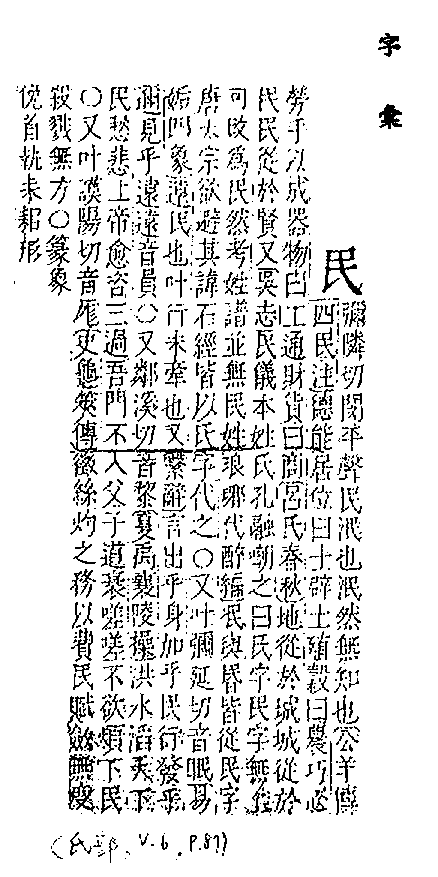 字彙
民
彌隣切閔平聲民泯也泯然無知也公羊傳
四民注德能居位曰士辟土殖穀曰農巧心
勞手以成器物曰工通財貨曰商呂氏春秋地從於城城從於
民民從於賢又吳志民儀本姓氏孔融嘲之曰氏字民無上
可改為民然考姓譜並無民姓琅琊代醉編泯與昬皆從民字
唐太宗欲避其諱石經皆以氏字代之○又叶彌延切音眠易
姤四象遠民也叶行未牽也又繫辭言出乎身加乎民行發乎
邇見乎遠遠音員○又鄰溪切音黎夏禹襄陵操洪水滔天下
民愁悲上帝愈咨三過吾門不入父子道衰嗟嗟不欲煩下民
○又叶謨陽切音厖史龜筴傳徵絲灼之務以費民賦斂無度
殺戮無方○篆象
俛首執耒耜形
(氏部, V.6, P.87)